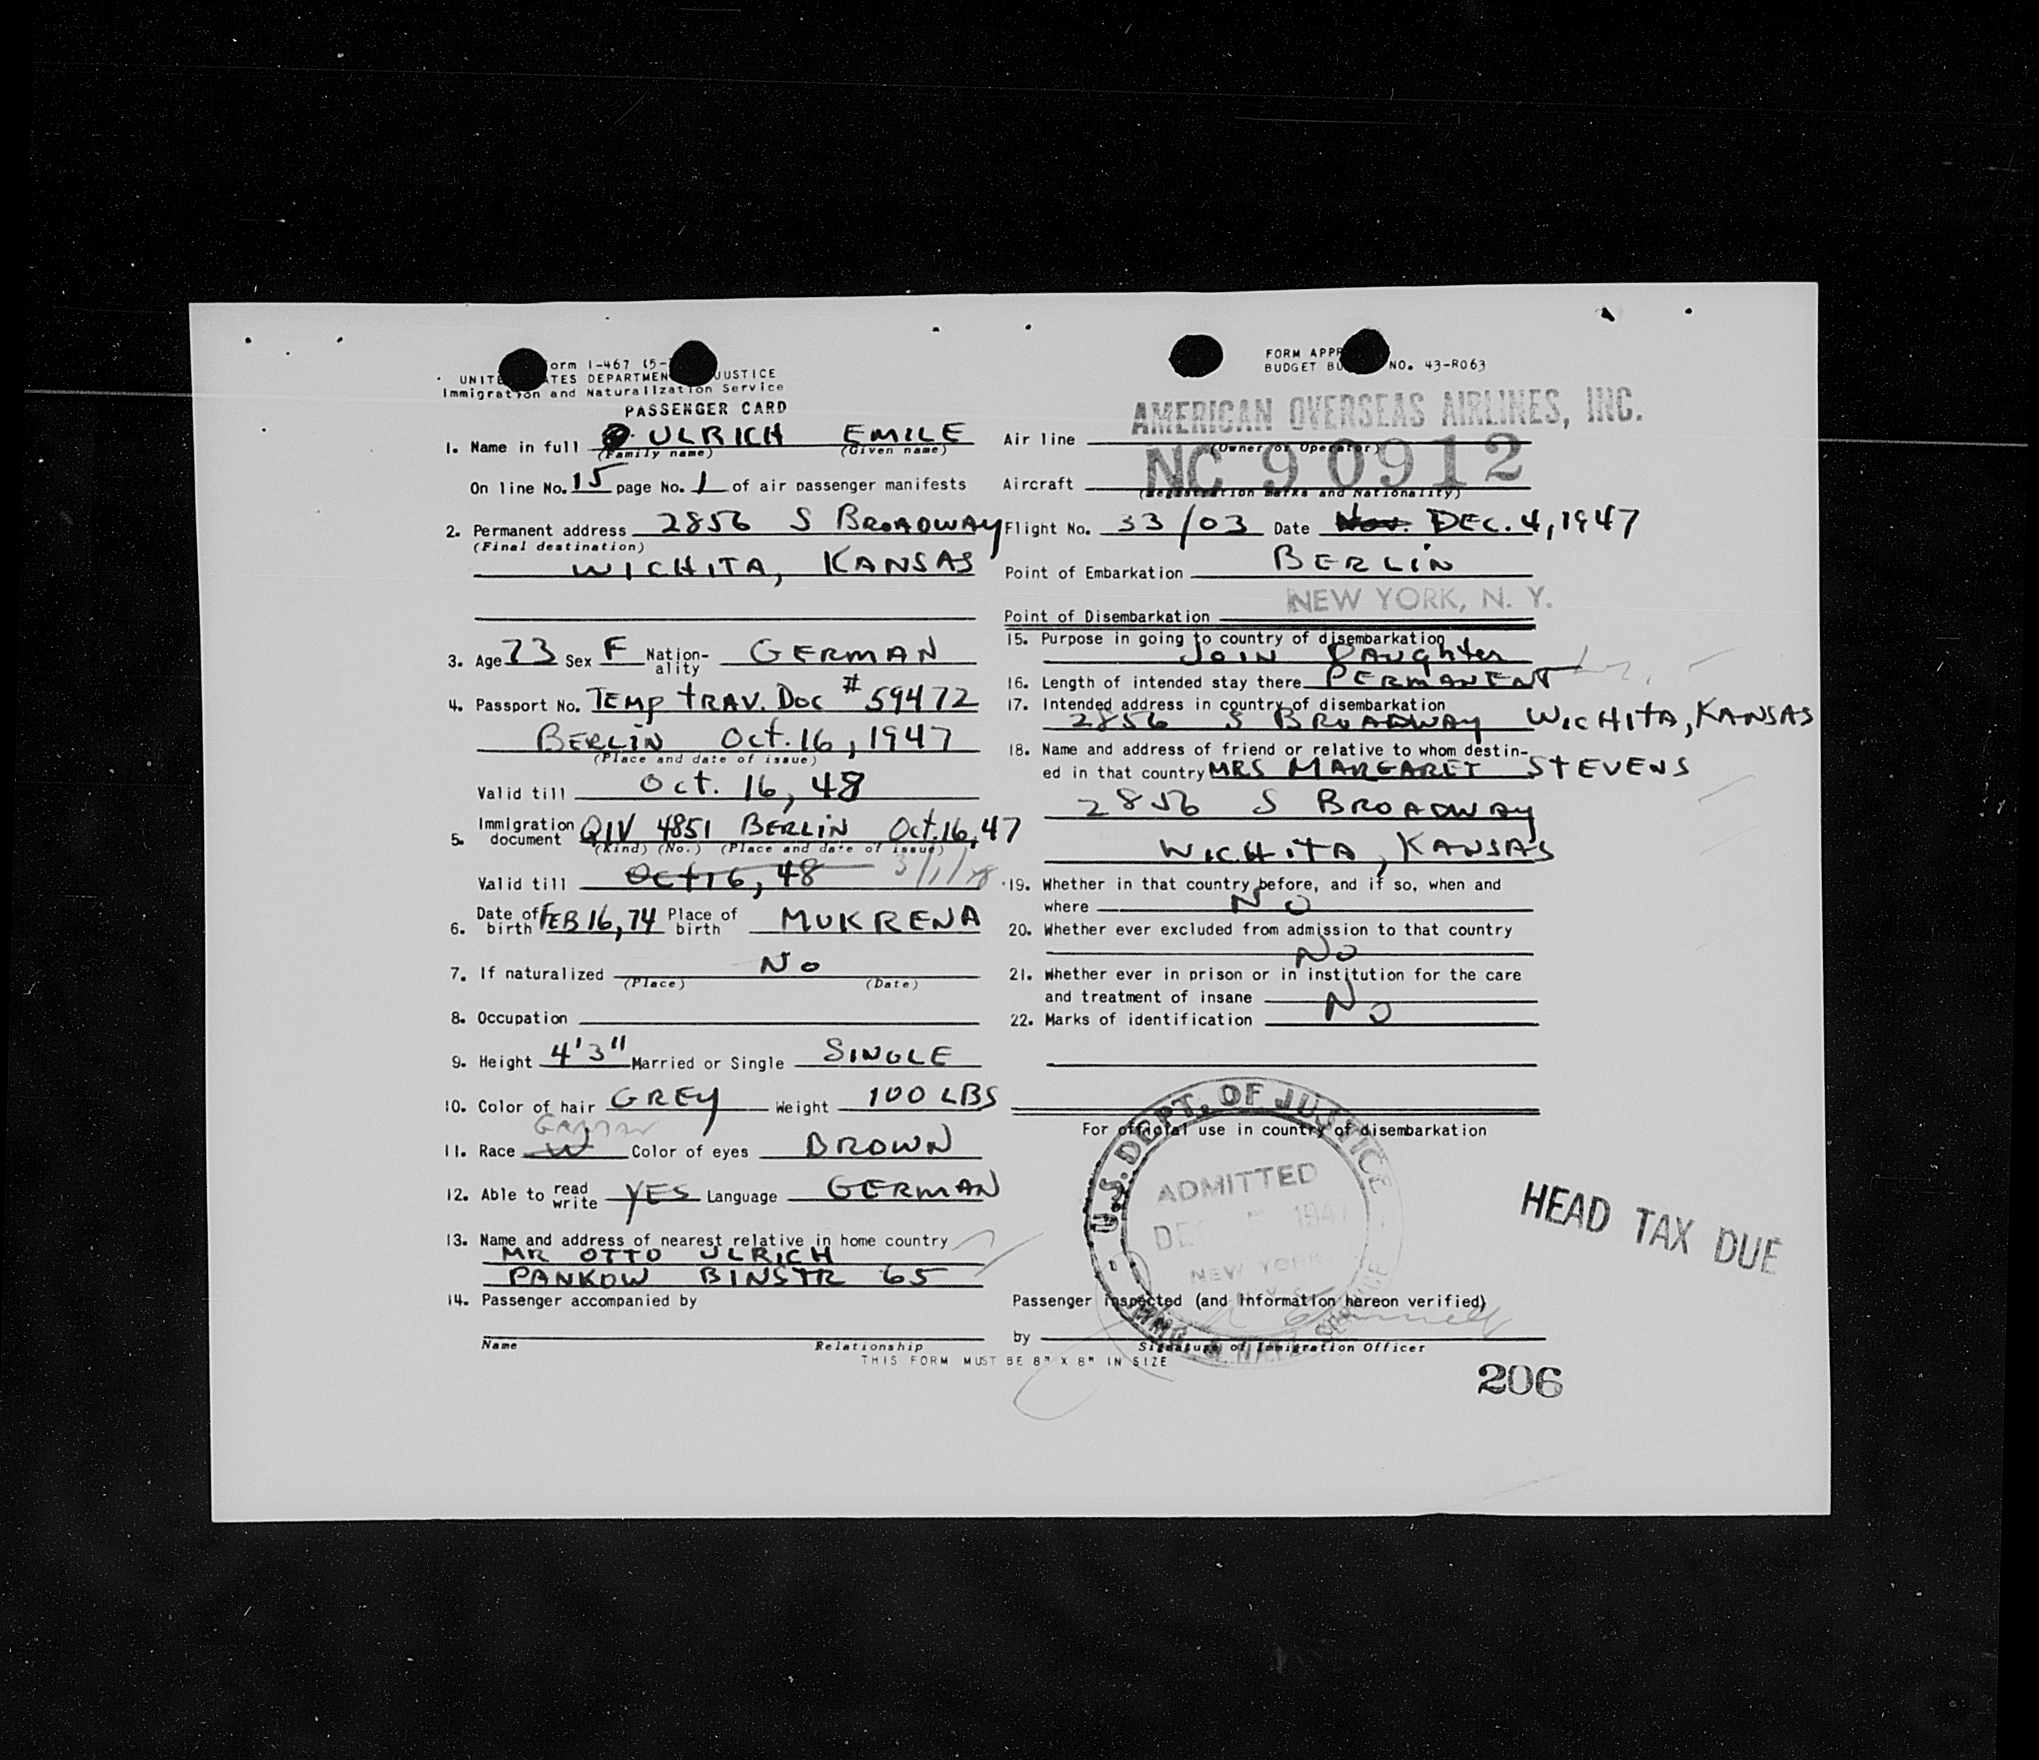 orm I-467 (5-
UNITE ATES DEPARTMEN JUSTICE
Immigration and Naturalization Service
PASSENGER CARD
1. Name in full ULRICH EMILE
(Family name) (Given name)
On line No. 15 page No. 1 of air passenger manifests
2. Permanent address 2856 S BROADWAY
(Final destination)
WICHITA, KANSAS
3. Age 73 Sex F Nation-ality GERMAN
4. Passport No. TEMP TRAV. DOC # 59472
BERLIN OCT. 16, 1947
(Place and date of issue)
Valid till OCT. 16, 48
5. Immigration document QIV 4851 BERLIN OCT. 16, 47
(Kind) (No.) (Place and date of issue)
Valid till OCT 16, 48 3/1/48
6. Date of birth FEB 16, 74 Place of birth MUKRENA
7. If naturalized NO
(Place) (Date)
8. Occupation
9. Height 4'3" Married or Single SINGLE
10. Color of hair GREY Weight 100 LBS
German
11. Race W Color of eyes BROWN
12. Able to read write YES Language GERMAN
13. Name and address of nearest relative in home country
MR OTTO ULRICH
PANKOW BINSTR 65
14. Passenger accompanied by
Name Relationship
THIS FORM MUST BE 8" X 8" IN SIZE
FORM APPR
BUDGET BU NO. 43-R063
AMERICAN OVERSEAS AIRLINES, INC.
Air line
(Owner or Operator)
NC 90912
Aircraft
(Registration Marks and Nationality)
Flight No. 33/03 Date Nov. DEC. 4, 1947
Point of Embarkation BERLIN
NEW YORK, N. Y.
Point of Disembarkation
15. Purpose in going to country of disembarkation
JOIN DAUGHTER
16. Length of intended stay there PERMANENT
17. Intended address in country of disembarkation
2856 S BROADWAY WICHITA, KANSAS
18. Name and address of friend or relative to whom destin-
ed in that country MRS MARGARET STEVENS
2856 S BROADWAY
WICHITA, KANSAS
19. Whether in that country before, and if so, when and
where NO
20. Whether ever excluded from admission to that country
NO
21. Whether ever in prison or in institution for the care
and treatment of insane NO
22. Marks of identification
For official use in country of disembarkation
U.S. DEPT. OF JUSTICE
ADMITTED
DEC 1947
NEW YORK
IMMG. & NATZ. SERVICE
HEAD TAX DUE
Passenger inspected (and information hereon verified)
by
Signature of Immigration Officer
206